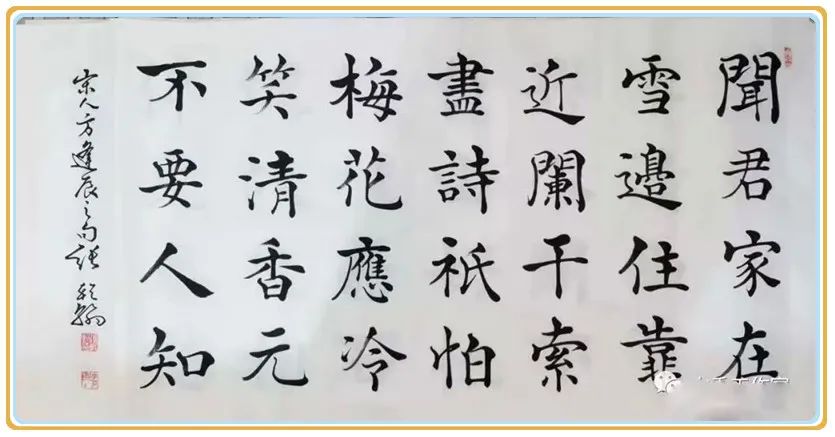 聞君家在
雪邊住靠
近闌干索
盡詩祇怕
梅花應冷
笑清香元
不要人知
宋人方逢辰之句張